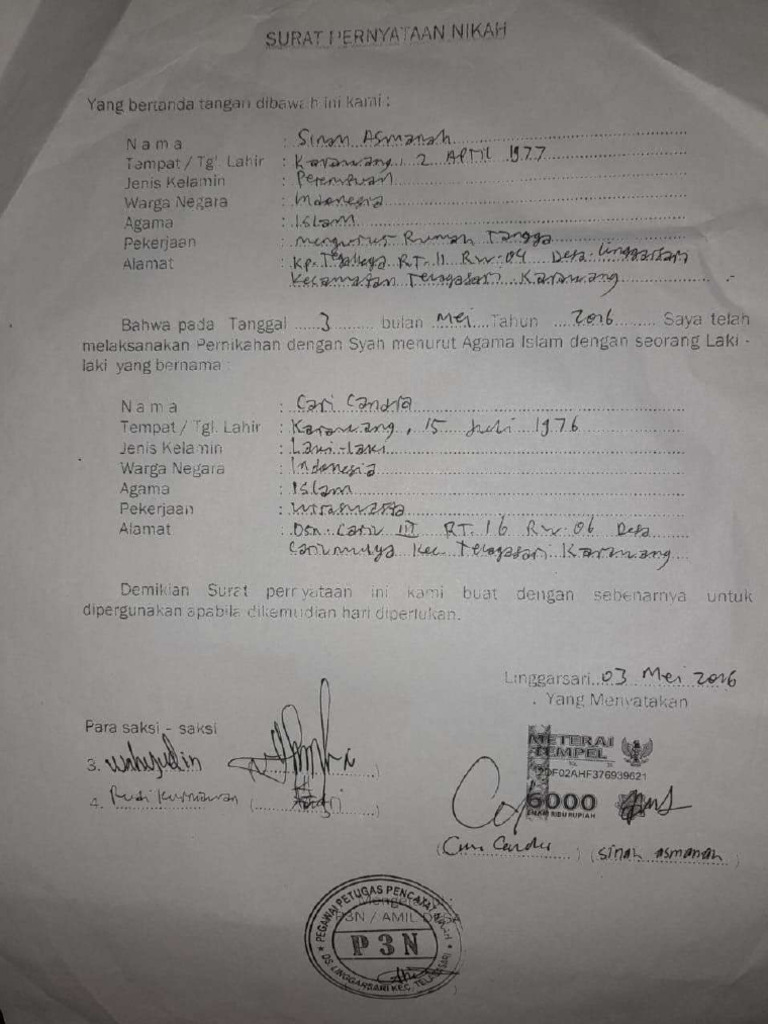 SURAT PERNYATAAN NIKAH
Yang bertanda tangan dibawah ini kami :
Nama : Sinah Asmanah
Tempat / Tgl. Lahir : Karawang, 2 APril 1977
Jenis Kelamin : Perempuan
Warga Negara : Indonesia
Agama : Islam
Pekerjaan : mengurus Rumah Tangga
Alamat : Kp. RT. 11 RW. 04 Desa Linggarsari
Kecamatan Telagasari Karawang
Bahwa pada Tanggal 3 bulan Mei Tahun 2016 Saya telah
melaksanakan Pernikahan dengan Syah menurut Agama Islam dengan seorang Laki -
laki yang bernama :
Nama : Cari Candra
Tempat / Tgl. Lahir : Karawang, 15 Juli 1976
Jenis Kelamin : Laki-laki
Warga Negara : Indonesia
Agama : Islam
Pekerjaan : Wiraswasta
Alamat : Dsn. Cariu III RT. 16 RW. 06 Desa
Cariumulya Kec. Telagasari Karawang
Demikian Surat pernyataan ini kami buat dengan sebenarnya untuk
dipergunakan apabila dikemudian hari diperlukan.
Linggarsari, 03 Mei 2016
Yang Menyatakan
Para saksi - saksi
3. Wahyudin
4. Rudi Kurniawan
METERAI
TEMPEL
20F02AHF376939621
6000
ENAM RIBU RUPIAH
(Candra) (Sinah asmanah)
Mengetahui
P3N / AMIL
PEGAWAI PETUGAS PENCATAT NIKAH
P3N
DS. LINGGARSARI KEC. TELAGASARI